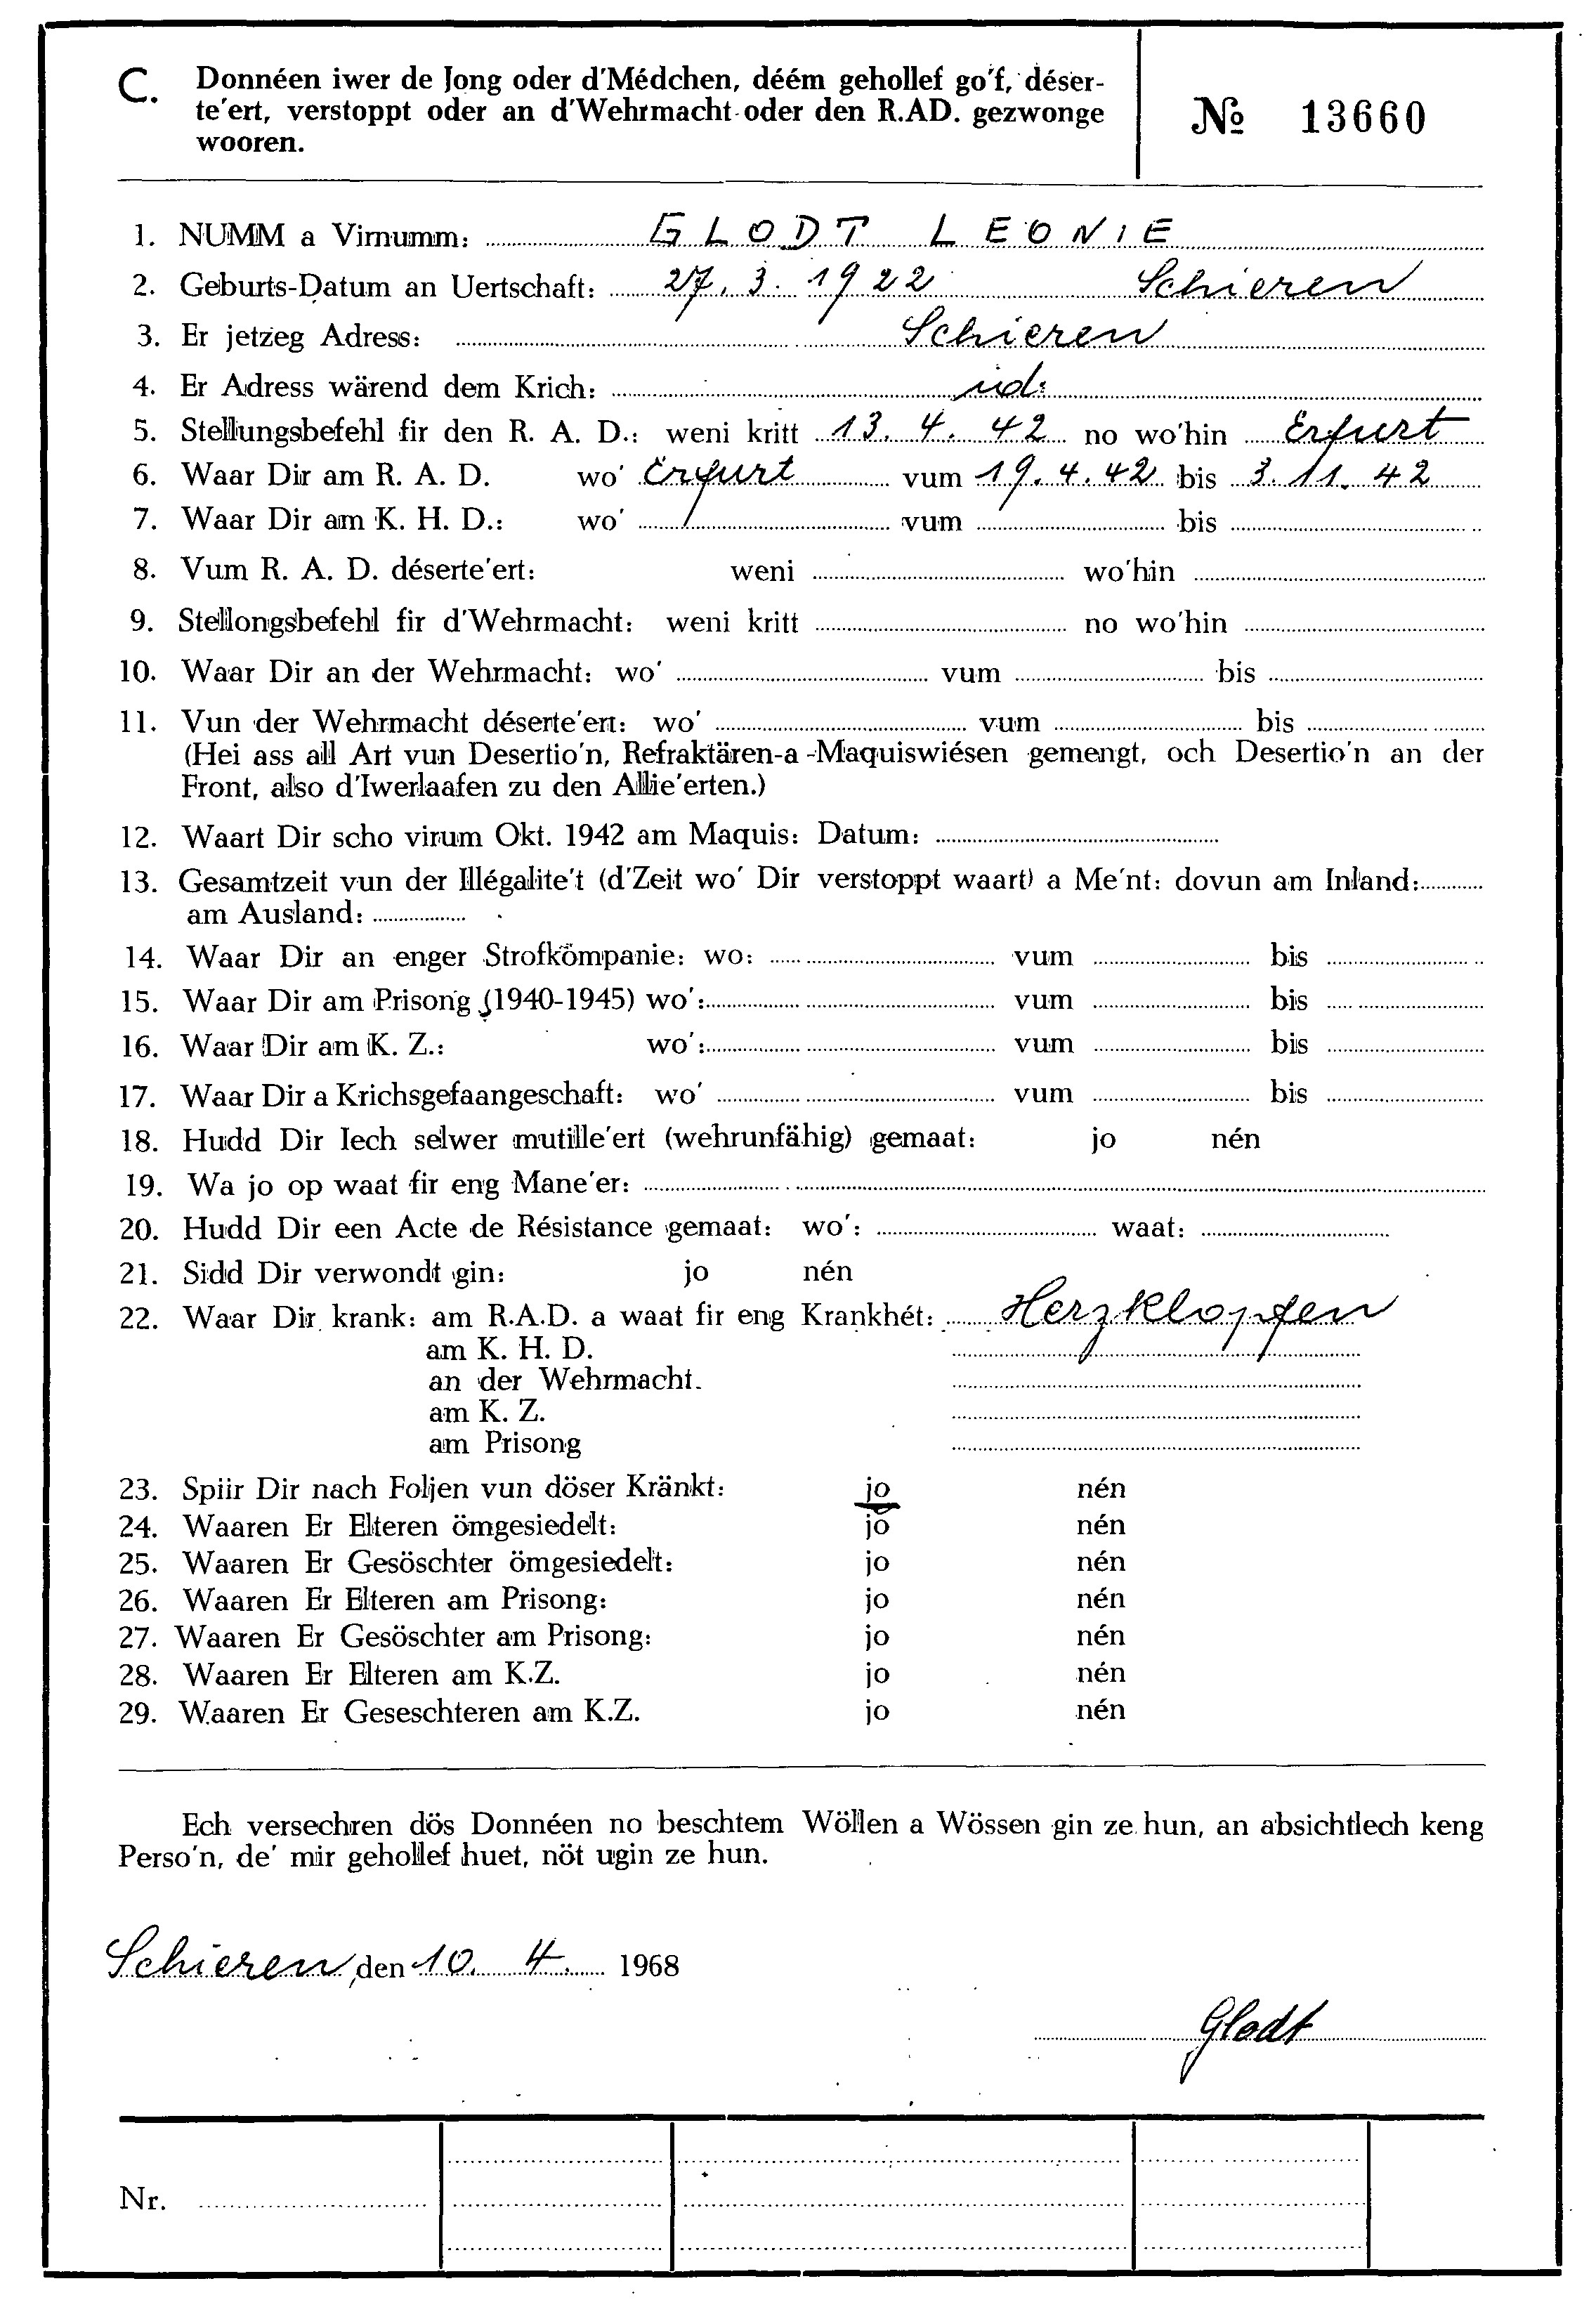 C. Donnéen iwer de Jong oder d'Médchen, déém gehollef go'f, déser-
te'ert, verstoppt oder an d'Wehrmacht oder den R.AD. gezwonge
wooren.
№ 13660
1. NUMM a Virnumm: GLODT LEONIE
2. Geburts-Datum an Uertschaft: 27. 3. 1922 Schieren
3. Er jetzeg Adress: Schieren
4. Er Adress wärend dem Krich: id.
5. Stellungsbefehl fir den R. A. D.: weni kritt 13. 4. 42 no wo'hin Erfurt
6. Waar Dir am R. A. D. wo' Erfurt vum 19. 4. 42 bis 3. 11. 42
7. Waar Dir am K. H. D.: wo' vum bis
8. Vum R. A. D. déserte'ert: weni wo'hin
9. Stellongsbefehl fir d'Wehrmacht: weni kritt no wo'hin
10. Waar Dir an der Wehrmacht: wo' vum bis
11. Vun der Wehrmacht déserte'ert: wo' vum bis
(Hei ass all Art vun Desertio'n, Refraktären-a -Maquiswiésen gemengt, och Desertio'n an der
Front, also d'Iwerlaafen zu den Allie'erten.)
12. Waart Dir scho virum Okt. 1942 am Maquis: Datum:
13. Gesamtzeit vun der Illégalite't (d'Zeit wo' Dir verstoppt waart) a Me'nt: dovun am Inland:
am Ausland:
14. Waar Dir an enger Strofkompanie: wo: vum bis
15. Waar Dir am Prisong (1940-1945) wo': vum bis
16. Waar Dir am K. Z.: wo': vum bis
17. Waar Dir a Krichsgefaangeschaft: wo' vum bis
18. Hudd Dir Iech selwer mutille'ert (wehrunfähig) gemaat: jo nén
19. Wa jo op waat fir eng Mane'er:
20. Hudd Dir een Acte de Résistance gemaat: wo': waat:
21. Sidd Dir verwondt gin: jo nén
22. Waar Dir krank: am R.A.D. a waat fir eng Krankhét: Herzklopfen
am K. H. D.
an der Wehrmacht.
am K. Z.
am Prisong
23. Spiir Dir nach Foljen vun döser Kränkt: jo nén
24. Waaren Er Elteren ömgesiedelt: jo nén
25. Waaren Er Gesöschter ömgesiedelt: jo nén
26. Waaren Er Elteren am Prisong: jo nén
27. Waaren Er Gesöschter am Prisong: jo nén
28. Waaren Er Elteren am K.Z. jo nén
29. Waaren Er Geseschteren am K.Z. jo nén
Ech versechren dös Donnéen no beschtem Wöllen a Wössen gin ze hun, an absichtlech keng
Perso'n, de' mir gehollef huet, nöt ugin ze hun.
Schieren, den 10. 4. 1968
Glodt
Nr.